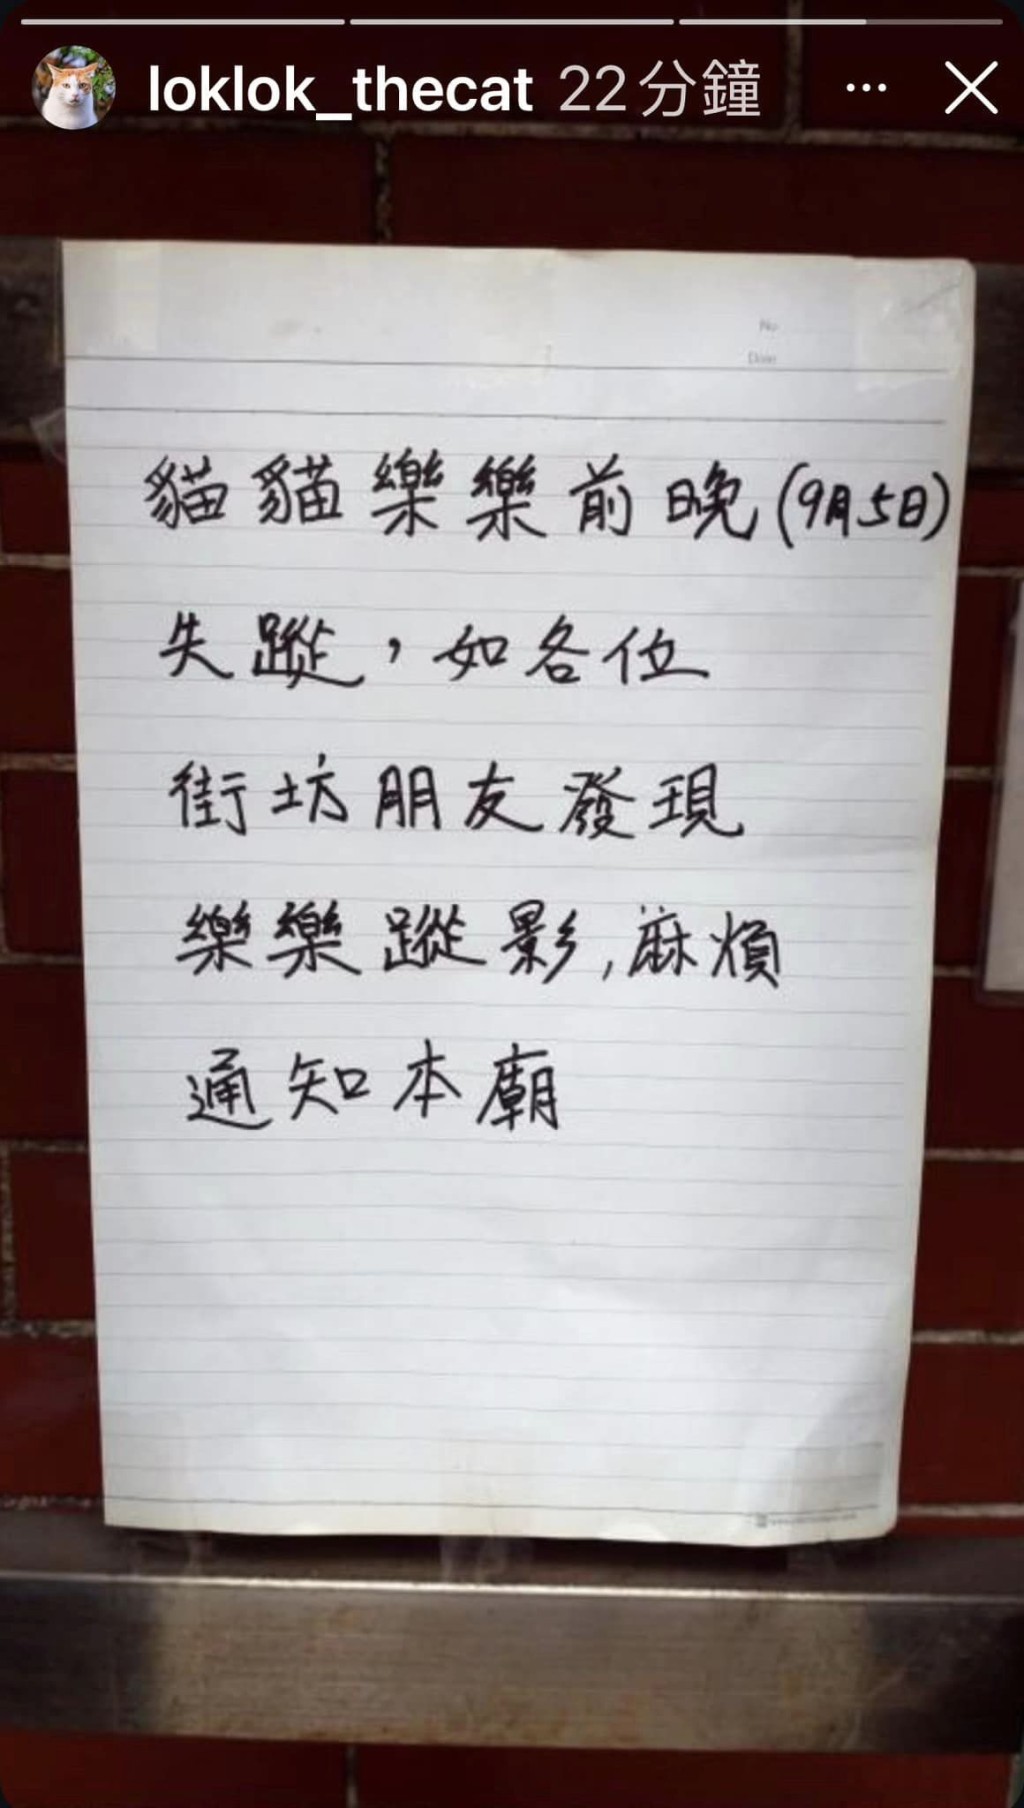 loklok_thecat 22分鐘
No
Date
貓貓樂樂前晚(9月5日)
失蹤，如各位
街坊朋友發現
樂樂蹤影,麻煩
通知本廟